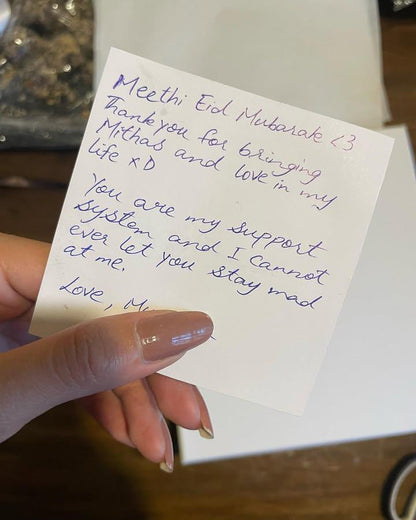 Meethi Eid Mubarak <3
Thank you for bringing
Mithas and love in my
life xD
You are my support
system and I cannot
ever let you stay mad
at me.
Love,